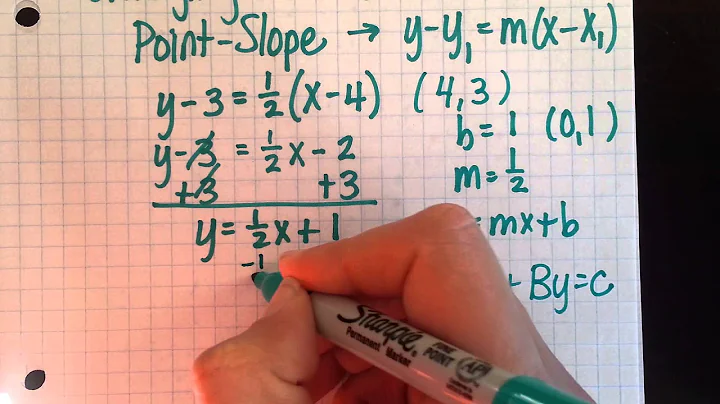 Point-Slope → y-y₁ = m(x-x₁)
y - 3 = 1/2 (x - 4) (4,3)
b = 1 (0,1)
y - 3 = 1/2 x - 2
+3 +3
m = 1/2
y = 1/2 x + 1
= mx + b
-1
+ By = C
Sharpie
Permanent Marker
FINE POINT
AP